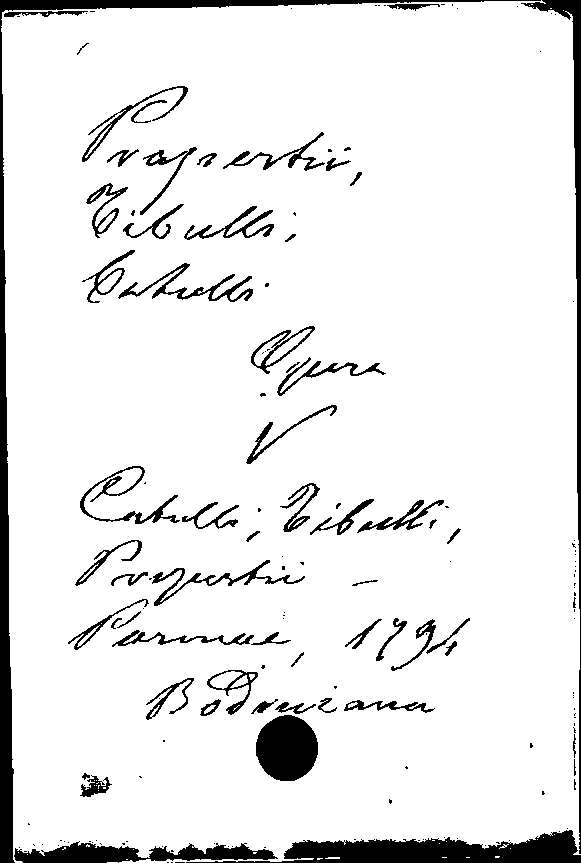 Propertii,
Tibulli,
Catulli
Opera
V
Catulli, Tibulli,
Propertii —
Parmae, 1794
Bodoniana